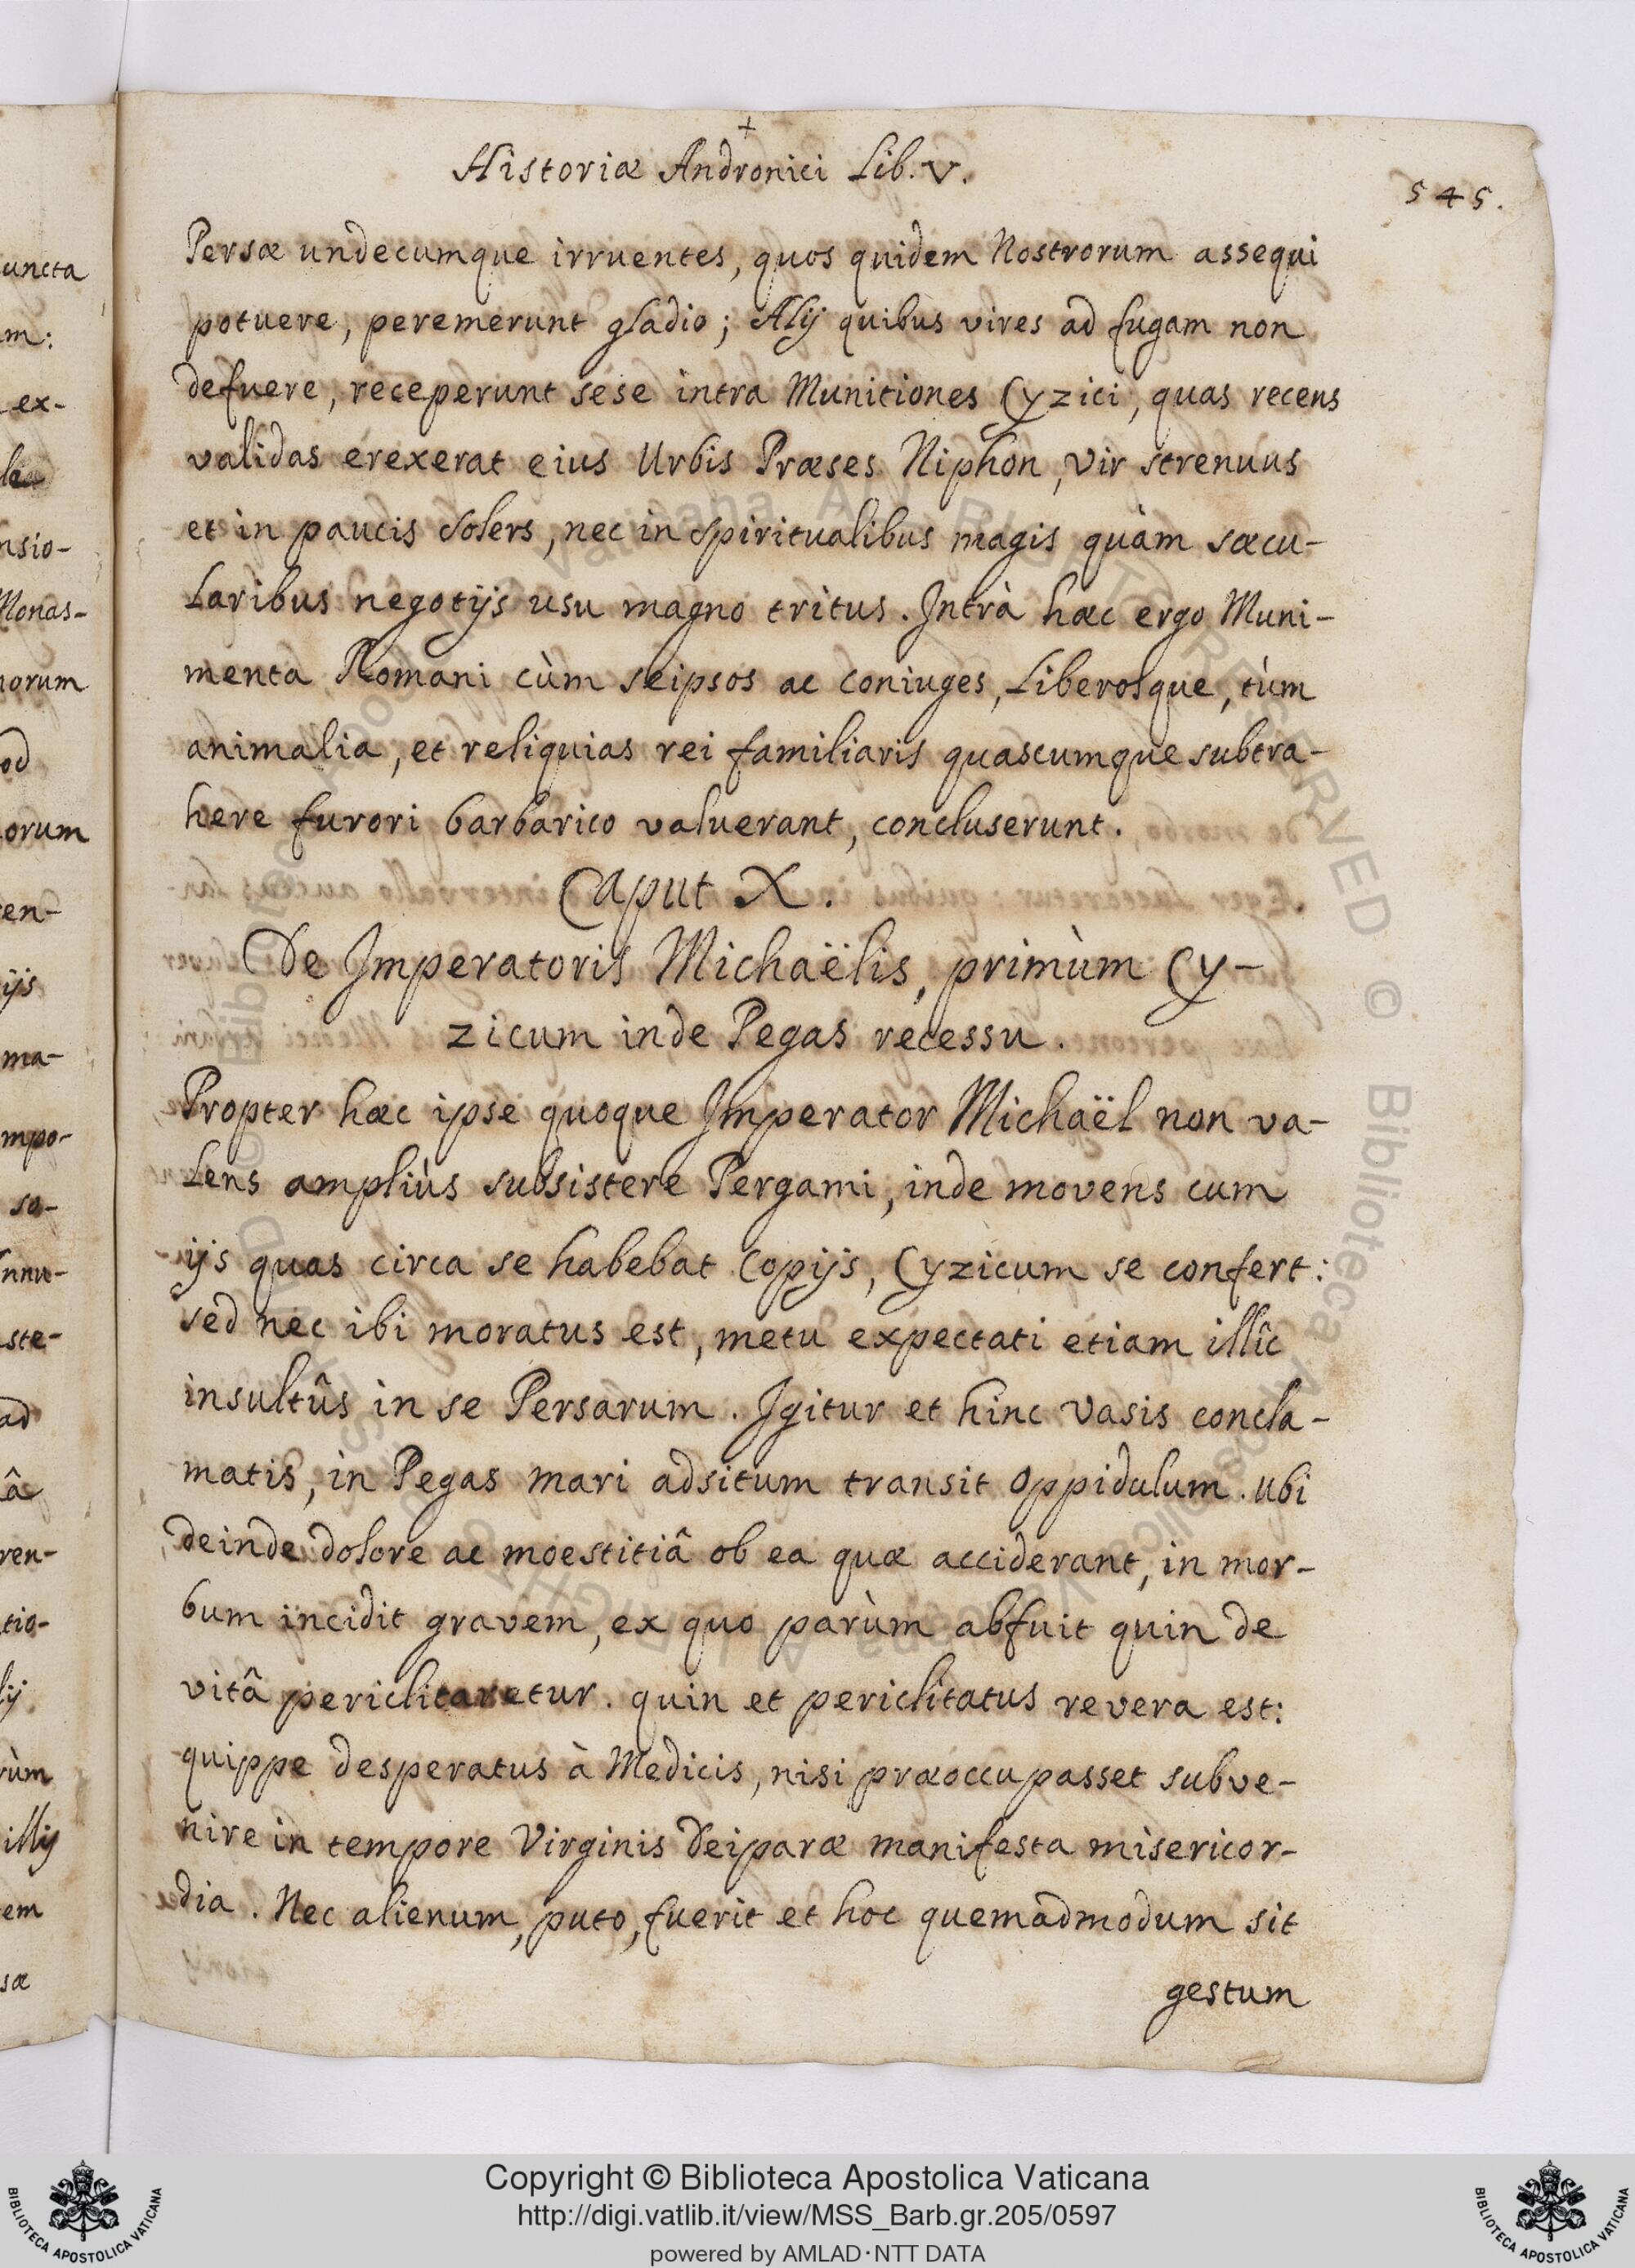 +
Historiæ Andronici Lib. V.
545.
Persæ undecumque irruentes, quos quidem Nostrorum assequi
potuere, peremerunt gladio; Alij quibus vires ad fugam non
defuere, receperunt sese intra Munitiones Cyzici, quas recens
validas erexerat eius Urbis Præses Niphon, vir strenuus
et in paucis solers, nec in spiritualibus magis quàm sæcu-
laribus negotijs usu magno tritus. Intrà hæc ergo Muni-
menta Romani cùm seipsos ac coniuges, Liberosque, tùm
animalia, et reliquias rei familiaris quascumque subtra-
here furori barbarico valuerant, concluserunt.
Caput X.
De Imperatoris Michaëlis, primùm Cy-
zicum inde Pegas recessu.
Propter hæc ipse quoque Imperator Michaël non va-
lens ampliùs subsistere Pergami, inde movens cum
ijs quas circa se habebat Copijs, Cyzicum se confert:
sed nec ibi moratus est, metu expectati etiam illîc
insultûs in se Persarum. Igitur et hinc vasis concla-
matis, in Pegas mari adsitum transit oppidulum. Ubi
deinde dolore ac moestitiâ ob ea quæ acciderant, in mor-
bum incidit gravem, ex quo parùm abfuit quin de
vitâ periclitaretur. quin et periclitatus revera est:
quippe desperatus à Medicis, nisi præoccupasset subve-
nire in tempore Virginis Deiparæ manifesta misericor-
dia. Nec alienum, puto, fuerit et hoc quemadmodum sit
gestum
uncta
m:
ex-
nsio-
Monas-
norum
od
orum
en-
ijs
ma-
mpo-
sa-
nnu-
ste-
ad
â
ren-
tio-
ij
rùm
illij
em
sæ
Copyright © Biblioteca Apostolica Vaticana
http://digi.vatlib.it/view/MSS_Barb.gr.205/0597
powered by AMLAD·NTT DATA
BIBLIOTECA APOSTOLICA VATICANA
BIBLIOTECA APOSTOLICA VATICANA